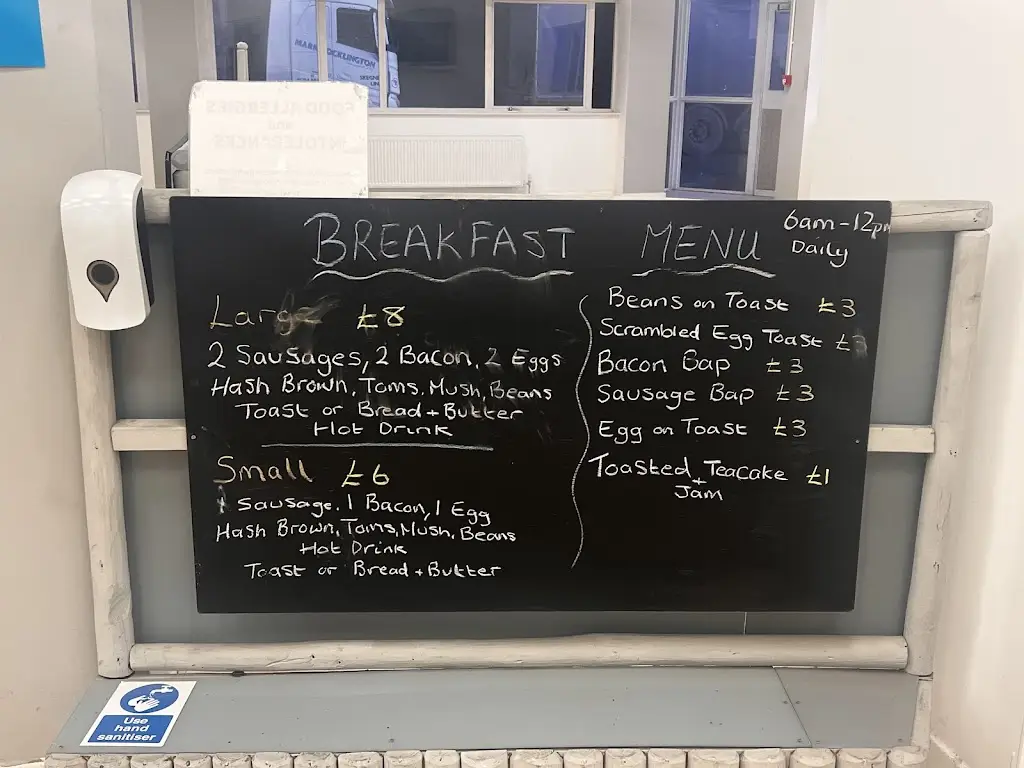 MARK
SKEGN
FOOD ALLERGIES
and
INTOLERANCES
BREAKFAST MENU
6am-12pm
Daily
Large £8
2 Sausages, 2 Bacon, 2 Eggs
Hash Brown, Toms, Mush, Beans
Toast or Bread + Butter
Hot Drink
Small £6
1 Sausage, 1 Bacon, 1 Egg
Hash Brown, Toms, Mush, Beans
Hot Drink
Toast or Bread + Butter
Beans on Toast £3
Scrambled Egg Toast £3
Bacon Bap £3
Sausage Bap £3
Egg on Toast £3
Toasted Teacake £1
+
Jam
Use
hand
sanitiser